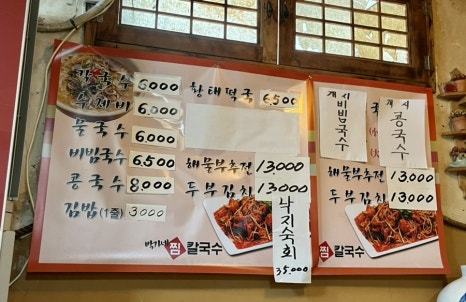 칼국수 6,000
수제비 6,000
물국수 6,000
비빔국수 6,500
콩국수 8,000
김밥(1줄) 3,000
황태떡국 6,500
해물부추전 13,000
두부김치 13,000
낙지숙회
35,000
박가네 찜 칼국수
개시
비빔국수
개시
콩국수
해물부추전 13,000
두부김치 13,000
찜 칼국수